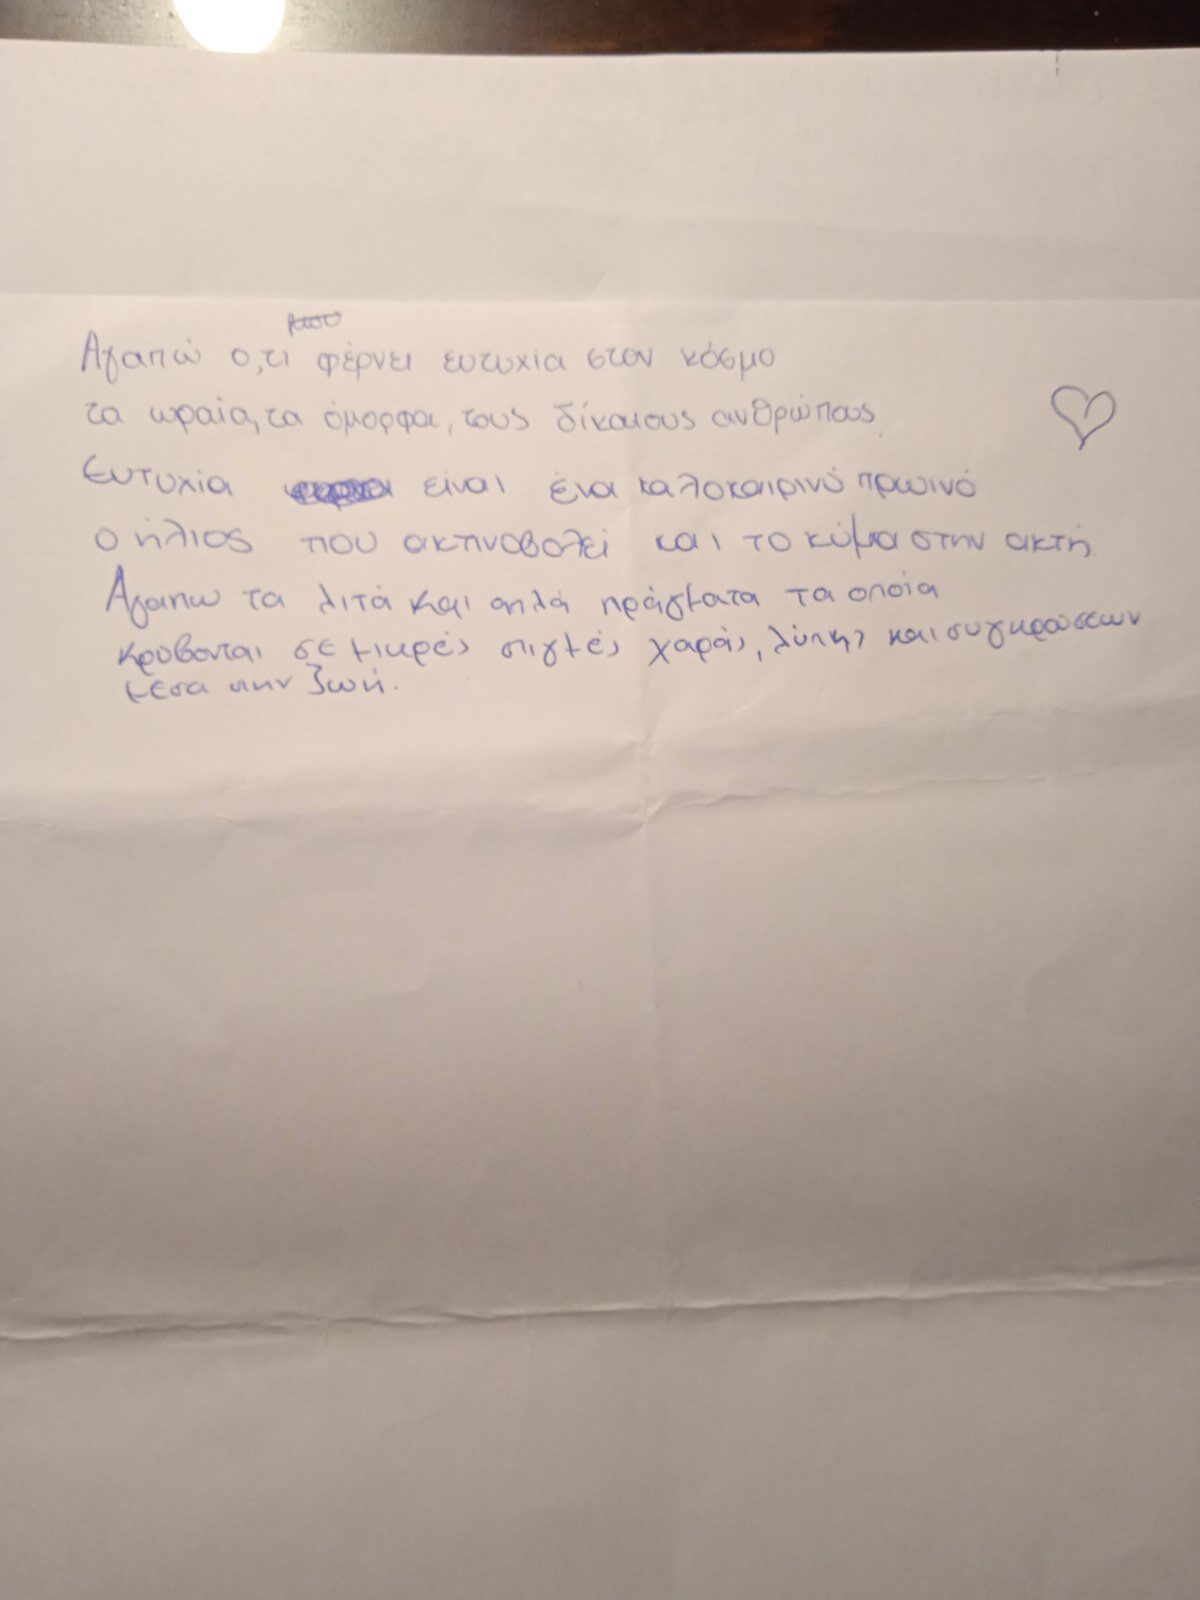 Αγαπώ ο,τι φέρνει ευτυχία στον κόσμο
τα ωραία, τα όμορφα, τους δίκαιους ανθρώπους
Ευτυχία είναι ένα καλοκαιρινό πρωινό
ο ήλιος που ακτινοβολεί και το κύμα στην ακτή
Αγαπω τα λιτά και απλά πράγματα τα οποία
κρύβονται σε μικρές στιγμές χαράς, λύπης και συγκρούσεων
μεσα στην ζωή.